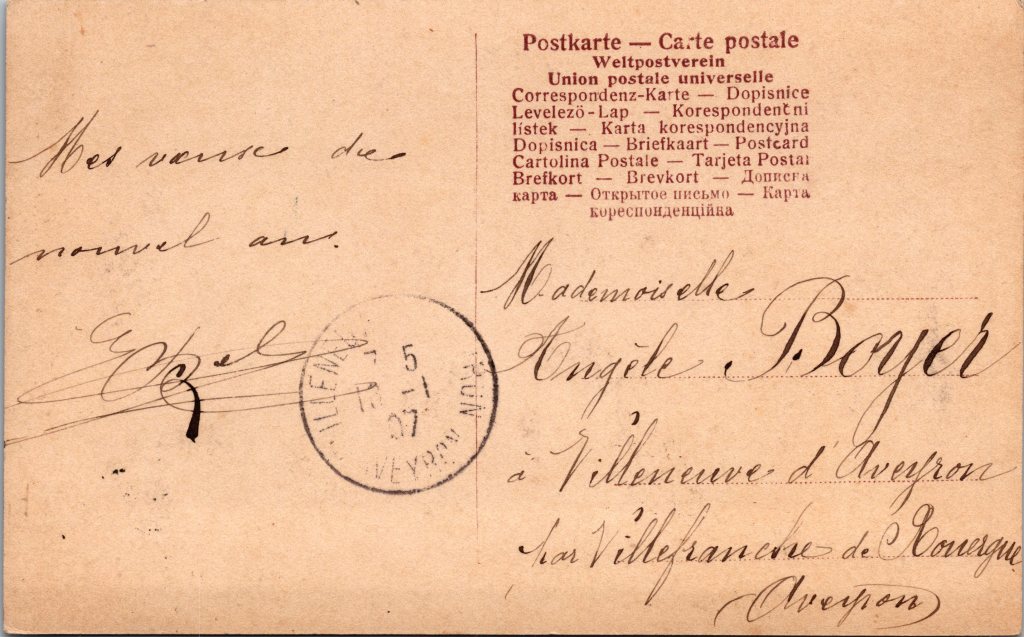 Postkarte — Carte postale
Weltpostverein
Union postale universelle
Correspondenz-Karte — Dopisnice
Levelező-Lap — Korespondenční
lístek — Karta korespondencyjna
Dopisnica — Briefkaart — Postcard
Cartolina Postale — Tarjeta Postal
Brefkort — Brevkort — Дописна
карта — Открытое письмо — Карта
кореспонденційна
Mes vœux de
nouvel an.
5
-1
07
AVEYRON
Mademoiselle
Angèle Boyer
à Villeneuve d'Aveyron
par Villefranche de Rouergue
(Aveyron)